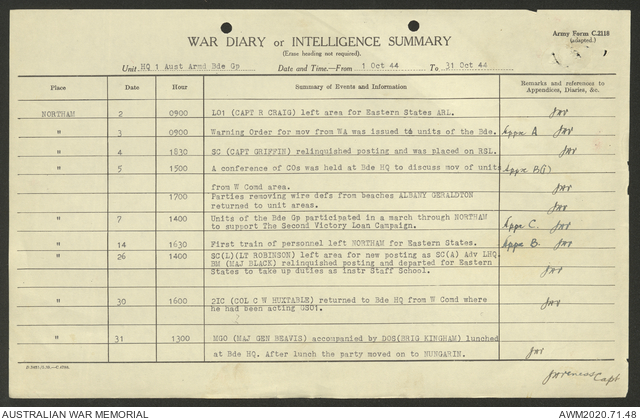 WAR DIARY or INTELLIGENCE SUMMARY
(Erase heading not required).
Army Form C.2118
(adapted.)
Unit HQ 1 Aust Armd Bde Gp Date and Time.—From 1 Oct 44 To 31 Oct 44
Place Date Hour Summary of Events and Information Remarks and references to
Appendices, Diaries, &c.
NORTHAM 2 0900 LO1 (CAPT R CRAIG) left area for Eastern States ARL.
" 3 0900 Warning Order for mov from WA was issued to units of the Bde. Appx A
" 4 1830 SC (CAPT GRIFFIN) relinquished posting and was placed on RSL.
" 5 1500 A conference of COs was held at Bde HQ to discuss mov of units Appx B(i)
from W Comd area.
1700 Parties removing wire defs from beaches ALBANY GERALDTON
returned to unit areas.
" 7 1400 Units of the Bde Gp participated in a march through NORTHAM
to support The Second Victory Loan Campaign. Appx C.
" 14 1630 First train of personnel left NORTHAM for Eastern States. Appx B.
" 26 1400 SC(L)(LT ROBINSON) left area for new posting as SC(A) Adv LHQ.
BM (MAJ BLACK) relinquished posting and departed for Eastern
States to take up duties as instr Staff School.
" 30 1600 2IC (COL C W HUXTABLE) returned to Bde HQ from W Comd where
he had been acting GSO1.
" 31 1300 MGO (MAJ GEN BEAVIS) accompanied by DOS(BRIG KINGHAM) lunched
at Bde HQ. After lunch the party moved on to NUNGARIN.
Capt
AUSTRALIAN WAR MEMORIAL AWM2020.71.48